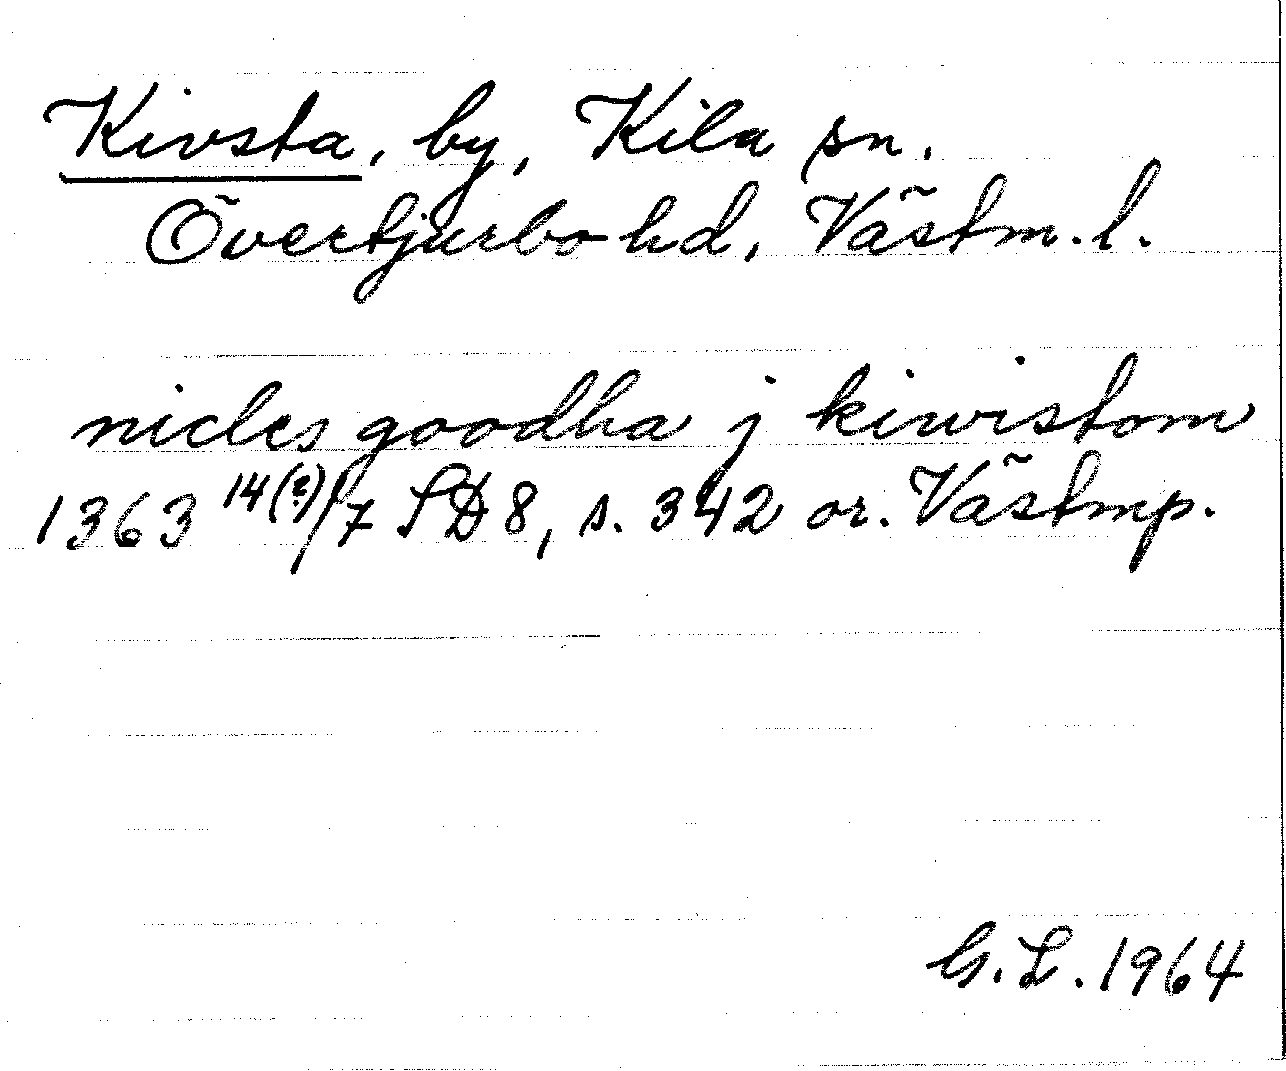 Kivsta, by, Kila sn.
Övertjurbo hd, Västm. l.
nicles goodha j kiwistom
1363 14(?)/7 SD 8, s. 342 or. Västmp.
G. L. 1964